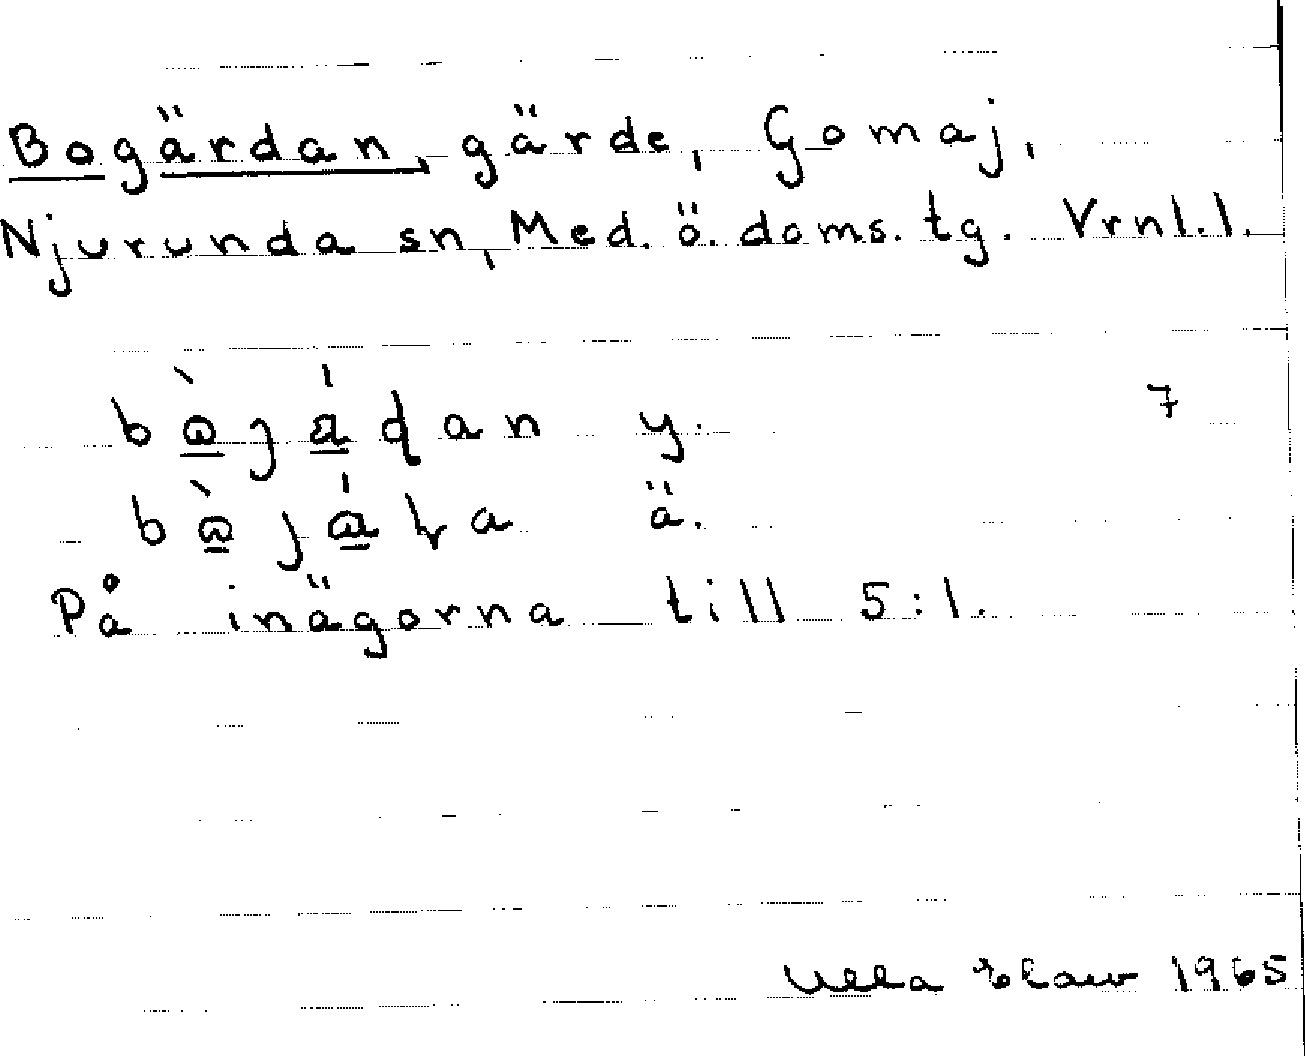 Bogärdan, gärde, Gomaj,
Njurunda sn, Med. ö. doms. tg. Vrnl.l.
y. 7
ä.
På inägorna till 5:1.
Ulla 1965